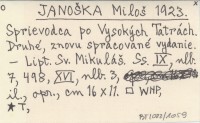 JANOŠKA Miloš 1923.
Sprievodca po Vysokých Tatrách.
Druhé, znovu spracované vydanie.
- Lipt. Sv. Mikuláš. Ss. IX, nlb.
7, 498, XVI, nlb. 3,
il., opr., cm 16 x 11. □ WNP,
★ T,